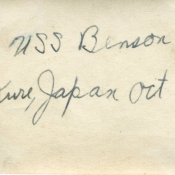 USS Benson
Kure, Japan Oct